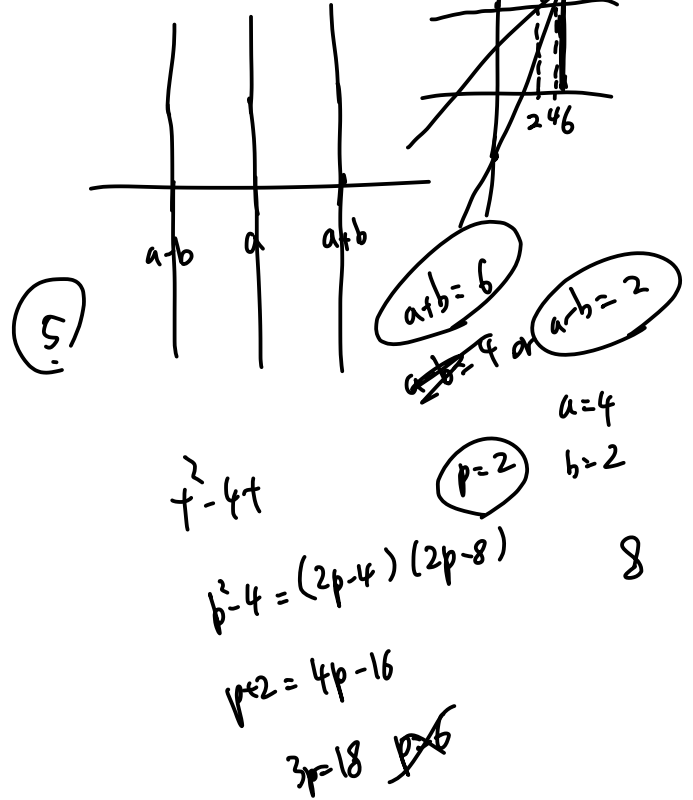 2 4 6
a-b a a+b
5
a+b=6
a-b=2
4 or
a=4
p=2
b=2
t²-4t
p²-4=(2p-4)(2p-8)
8
p+2=4p-16
3p=18 p=6